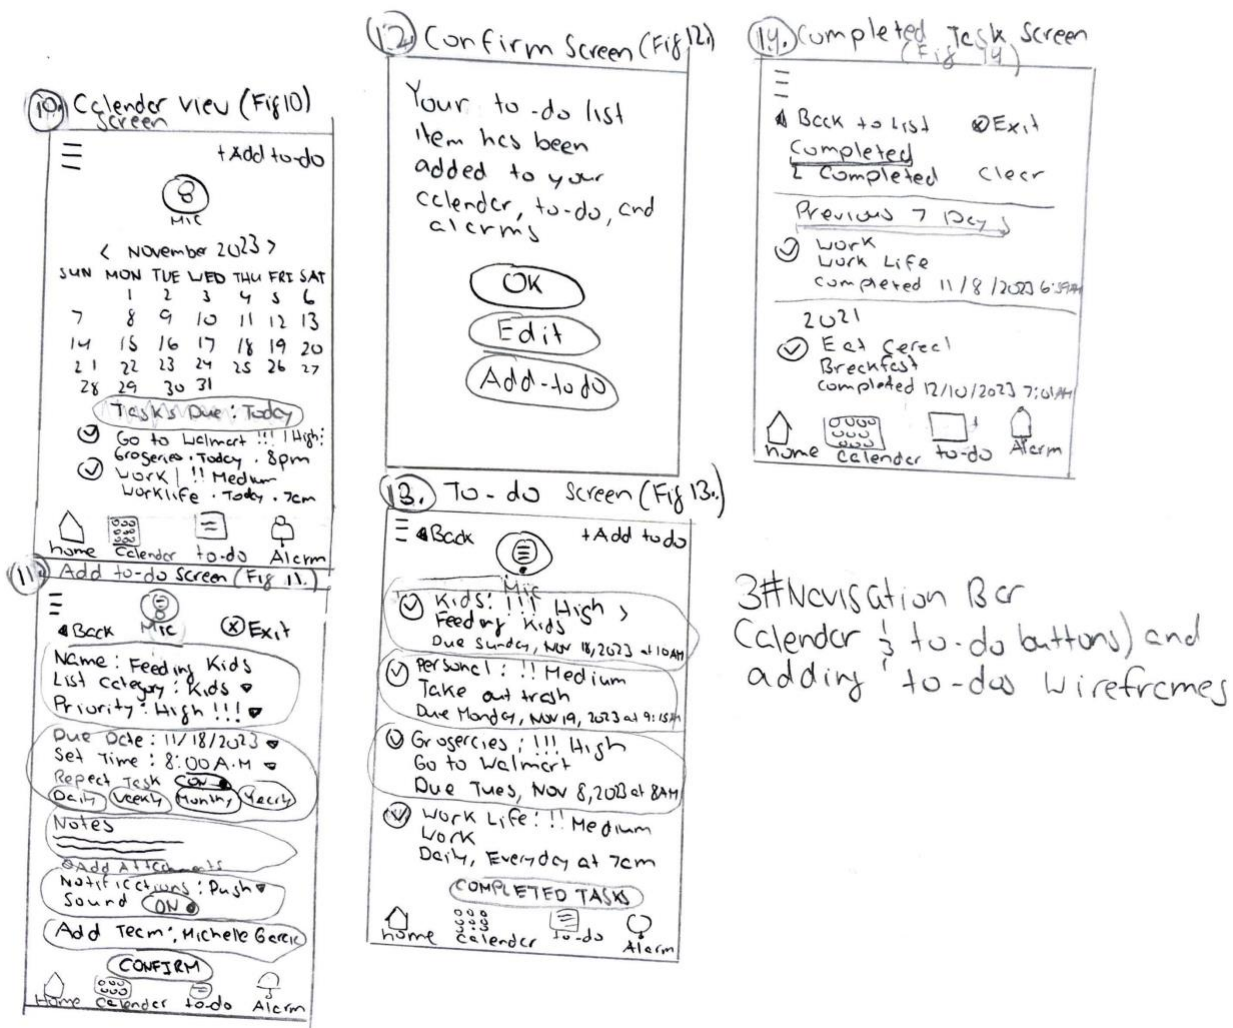 10. Calender View (Fig 10)
Screen
+Add to-do
Mic
< November 2023 >
SUN MON TUE WED THU FRI SAT
1 2 3 4 5 6
7 8 9 10 11 12 13
14 15 16 17 18 19 20
21 22 23 24 25 26 27
28 29 30 31
Tasks Due: Today
Go to Walmart !!! High:
Grogeries · Today · 8pm
Work | !! Medium
Worklife · Today · 7am
home Calender to-do Alarm
11. Add to-do Screen (Fig 11.)
Mic
Back Exit
Name: Feeding Kids
List Category: Kids
Priority: High !!!
Due Date: 11/18/2023
Set Time: 8:00 A.M
Repeat Task ON
Daily Weekly Monthly Yearly
Notes
Add Attachments
Notifications: Push
Sound ON
Add Team: Michelle Garcia
CONFIRM
Home Calender to-do Alarm
12. Confirm Screen (Fig 12.)
Your to-do list
item has been
added to your
calender, to-do, and
alarms
OK
Edit
Add-to do
13. To-do Screen (Fig 13.)
Back +Add to do
Mic
Kids: !!! High >
Feeding Kids
Due Sunday, Nov 18, 2023 at 10AM
Personal: !! Medium
Take out trash
Due Monday, Nov 19, 2023 at 9:15
Grogercies: !!! High
Go to Walmart
Due Tues, Nov 8, 2023 at 8AM
Work Life: !! Medium
Work
Daily, Everyday at 7am
COMPLETED TASKS
home Calender to-do Alarm
14. Completed Task Screen
(Fig 14)
Back to List Exit
Completed
2 Completed Clear
Previous 7 Days
Work
Work Life
completed 11/8/2023 6:59AM
2021
Eat Cereal
Breakfast
completed 12/10/2023 7:01AM
home Calender to-do Alarm
3# Navigation Bar
Calender & to-do buttons) and
adding to-dos Wireframes